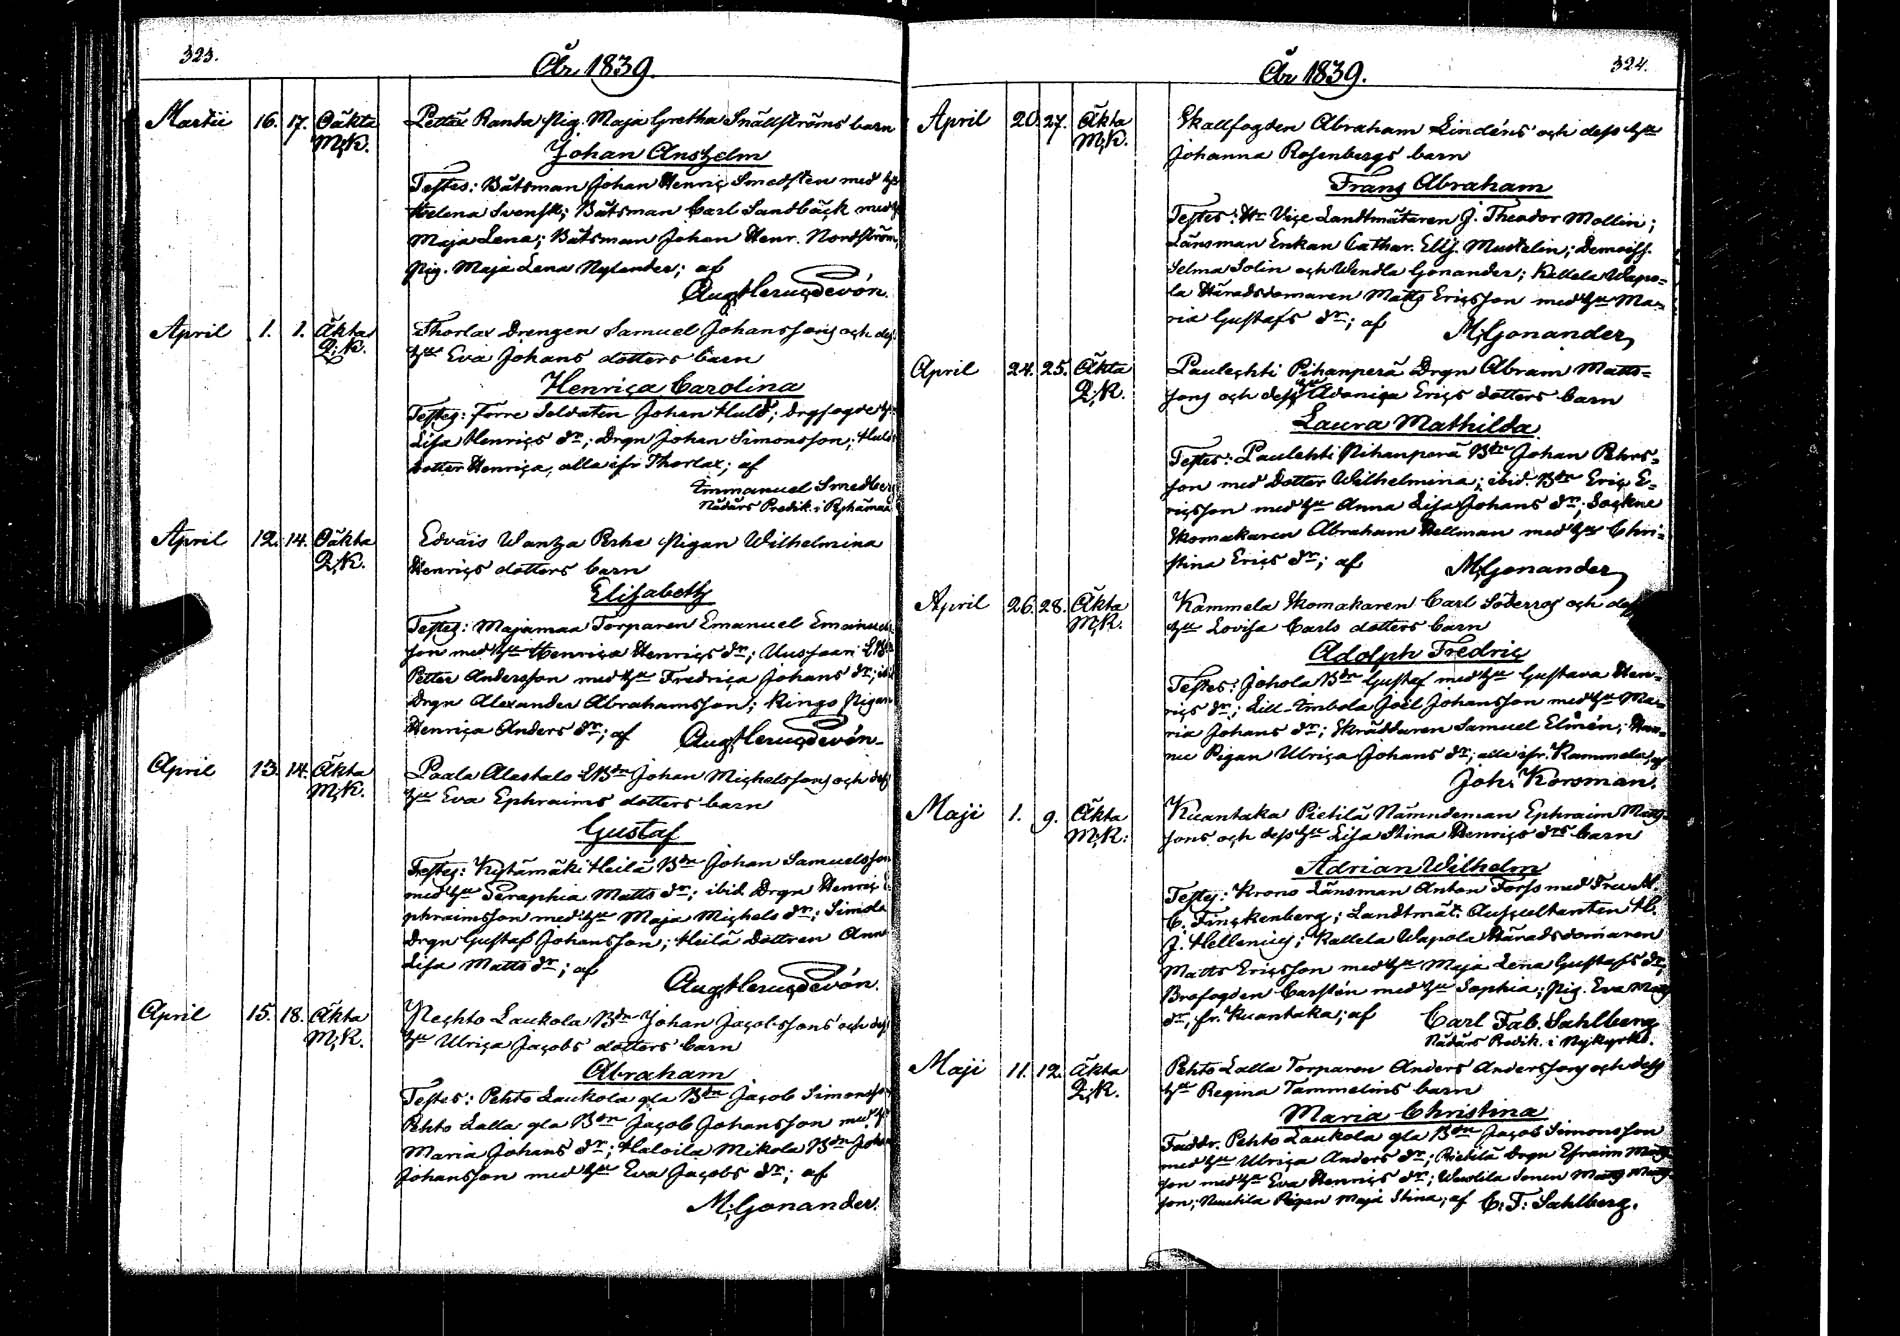 323.
År 1839.
Martii 16. 17. Oäkta Lettäi Randa Pig. Maja Gretha Snällströms barn
M;K.
Johan Anshelm
Testes: Båtsman Johan Henric Smedsten med h:u
Helena Svensk; Båtsman Carl Sandbäck med h
Maja Lena; Båtsman Johan Henr. Nordström,
Pig. Maja Lena Nylander; af
Aug. Heruc Devón.
April 1. 1. Äkta Thorlax Drengen Samuel Johanssons och des
Q;K. h:u Eva Johans dotters barn
Henrica Carolina
Testes: Förre Soldaten Johan Huld; Drgfogde h:u
Lisa Henrics d:r; Drgn Johan Simonsson; Huld
dotter Henrica, alla ifr. Thorlax; af
Emmanuel Smedberg
Nådårs Predik. i Pyhämaa
April 12. 14. Oäkta Edvais Wantza Pigan Wilhelmina
Q;K. Henrics dotters barn
Elisabeth
Testes: Majamaa Torparen Emanuel Emanuels
son med h:u Henrica Henrics d:r;
Petter Andersson med h:u Fredrica Johans d:r; ibid
Drgn Alexander Abrahamsson; Ringo Pigan
Henrica Anders d:r; af Aug. Heruc Devón
April 13. 14. Äkta Paala Alastalo LBdn Johan Michelssons och des
M;K. h:u Eva Ephraims dotters barn
Gustaf
Testes: Kytämäki Heilä Bdn Johan Samuelsson
med h:u Seraphia Matts d:r; ibid. Drgn Henric E
phraimsson med h:u Maja Michels d:r; Simola
Drgn Gustaf Johansson; Heilä Dottren Anna
Lisa Matts d:r; af
Aug. Heruc Devón.
April 15. 18. Äkta Nechto Laukola Bdn Johan Jacobssons och des
M;K. h:u Ulrica Jacobs dotters barn
Abraham
Testes: Pehto Laukola gla Bdn Jacob Simonsson
Pehto Lalla gla Bdn Jacob Johansson med h:u
Maria Johans d:r; Haloila Mikola Bdn Johan
Johansson med h:u Eva Jacobs d:r; af
M. Gonander.
324.
År 1839.
April 20. 27. Äkta Skallfogden Abraham Lindéns och dess h:u
M;K. Johanna Rosenbergs barn
Frans Abraham
Testes: Hr Vice Landtmätaren J. Theodor Mollin;
Länsman Enkan Cathar. Elis. Muskelin; Demoiss.
Selma Solin och Wendla Gonander; Kallela Wapo=
la Häradsdomaren Matts Ericsson med h:u Ma=
ria Gustafs d:r; af M. Gonander
April 24. 25. Äkta Paulechti Pihanperä Drgn Abram Matts=
Q;K. sons och dess h:u Adonica Erics dotters barn
Laura Mathilda
Testes: Paulehti Pihanperä Bdn Johan Pehrs=
son med Dotter Wilhelmina; ibid. Bdn Eric E=
ricsson med h:u Anna Lisa Johans d:r; Sockne
Skomakaren Abraham Hellman med h:u Chri=
stina Erics d:r; af M. Gonander
April 26. 28. Äkta Kammela Skomakaren Carl Söderros och dess
M;K. h:u Lovisa Carls dotters barn
Adolph Fredric
Testes: Johola Bdn Gustaf med h:u Gustava Hen=
rics d:r; Lill-Embola Joël Johansson med h:u Ma=
ria Johans d:r; Skräddaren Samuel Elmén;
Pigan Ulrica Johans d:r; alla ifr. Kammela, af
Joh. Korsman.
Maji 1. 9. Äkta Kuantaka Pietilä Nämndeman Ephraim Matts
M;K. sons och dess h:u Lisa Stina Henrics d:rs barn
Adrian Wilhelm
Testes: Krono Länsman Anton Forss med Fru H.
C. Finckenberg; Landtmät. Auscultanten H.
J. Hellenius; Kallela Wapola Häradsdomaren
Matts Ericsson med h:u Maja Lena Gustafs d:r;
Brofogden Carstén med h:u Sophia; Pig. Eva Matts
d:r, fr. Kuantaka; af Carl Fab. Sahlberg
Nådårs Predik. i Nykyrko.
Maji 11. 12. Äkta Pehto Lalla Torparen Anders Anderssons och dess
Q;K. h:u Regina Tammelins barn
Maria Christina
Faddr. Pehto Laukola gla Bdn Jacob Simonsson
med h:u Ulrica Anders d:r; Pietilä Drgn Efraim Matts
son med h:u Eva Henrics d:r; Sonen Matts Matts
son; Pigan Maja Stina; af C. F. Sahlberg.